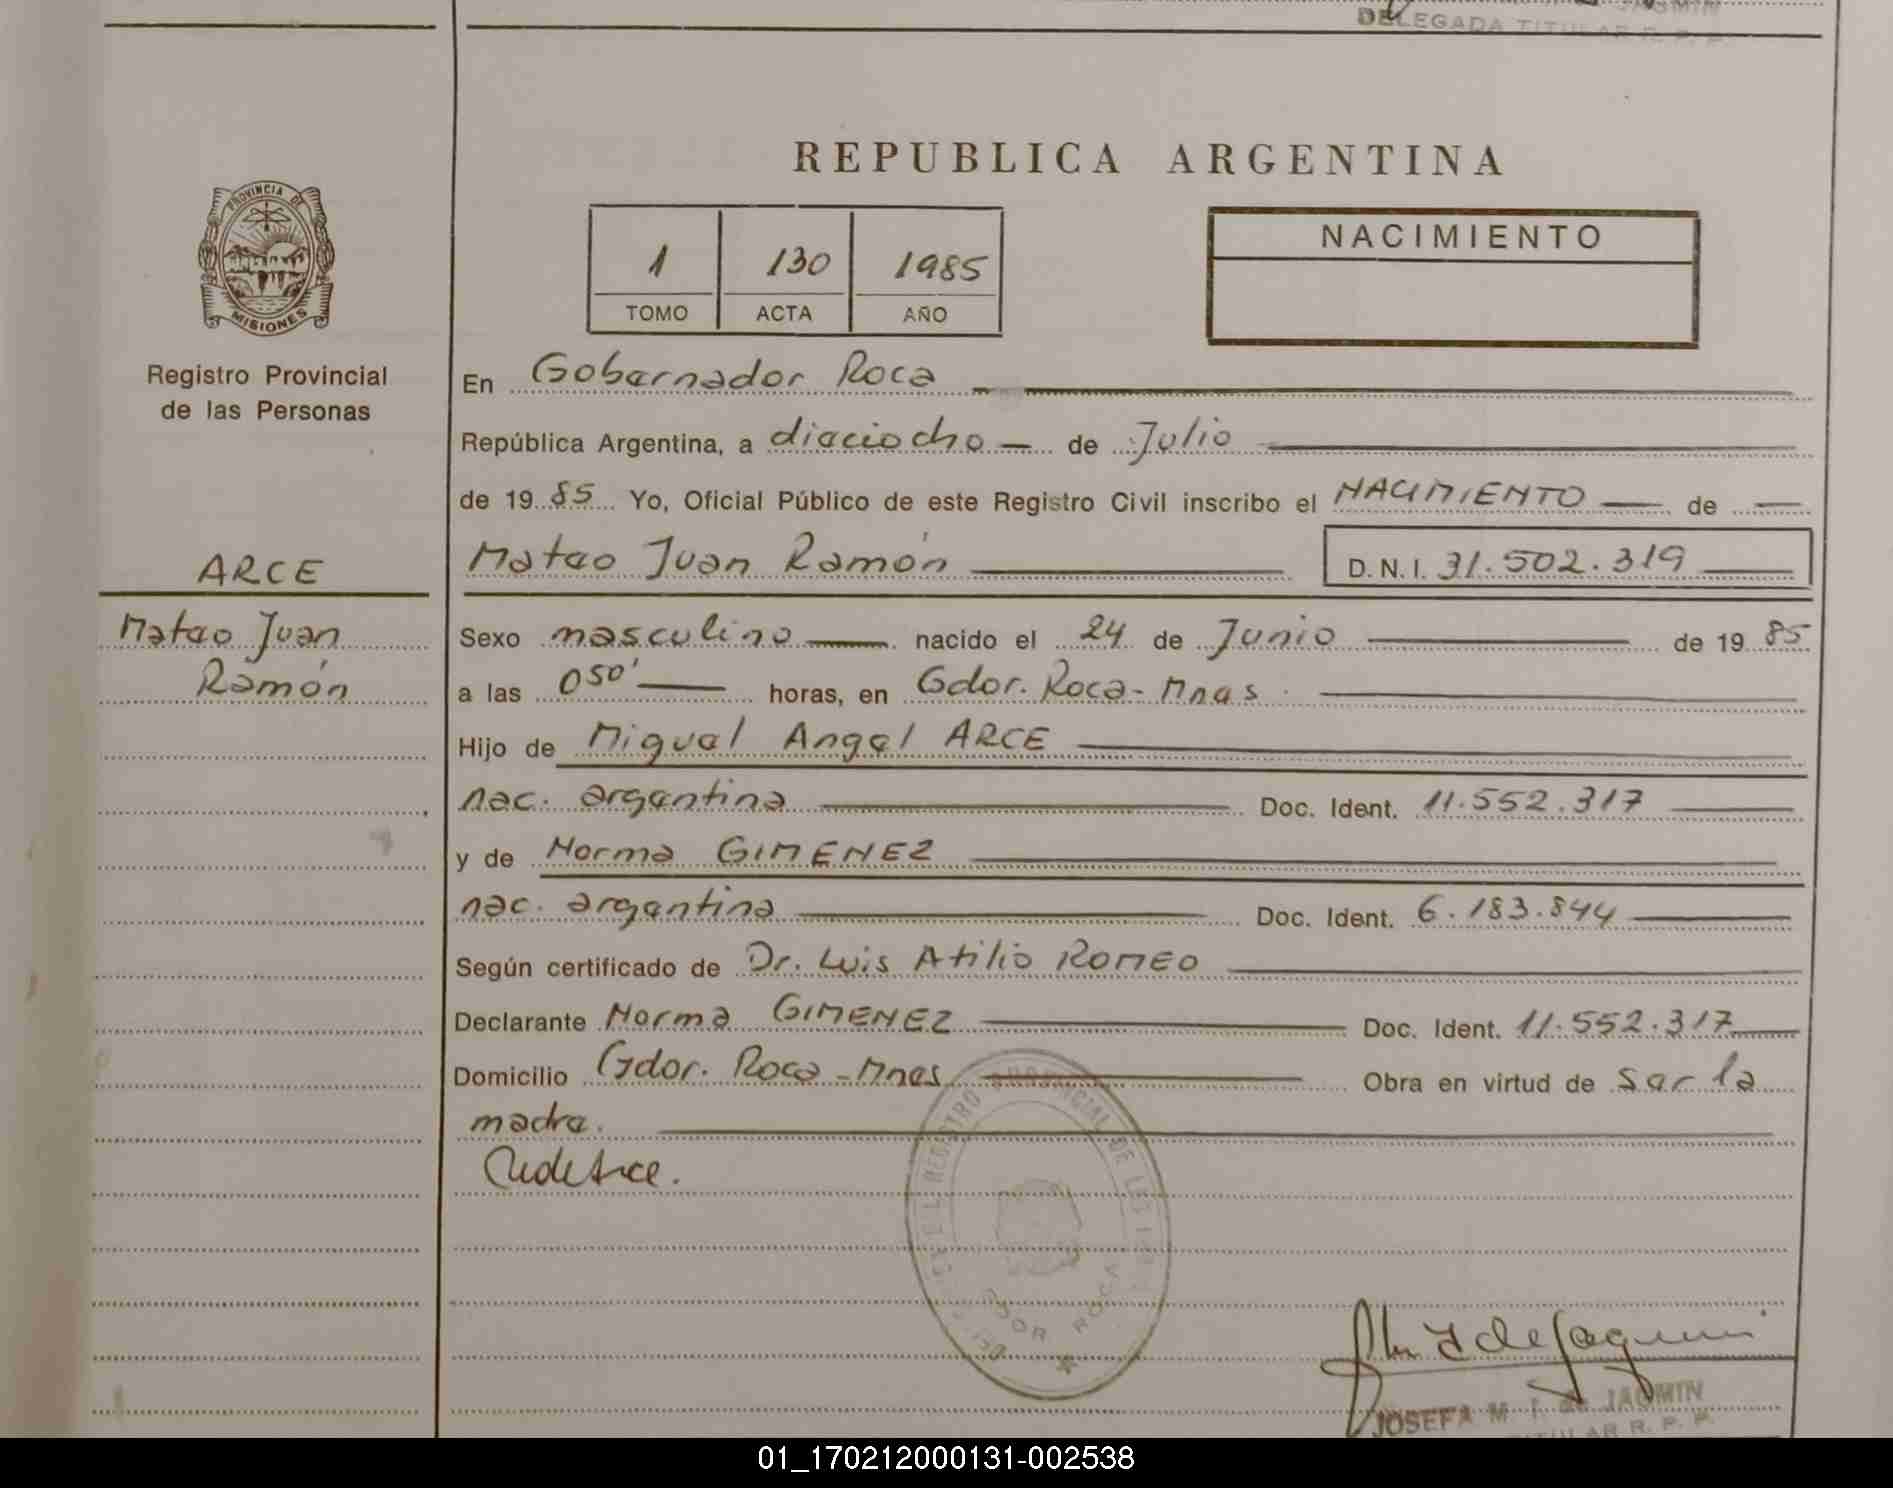 DELEGADA TITULAR R. P. P.
REPUBLICA ARGENTINA
PROVINCIA DE
MISIONES
Registro Provincial
de las Personas
1 130 1985
TOMO ACTA AÑO
NACIMIENTO
En Gobernador Roca
República Argentina, a dieciocho de Julio
de 1985 Yo, Oficial Público de este Registro Civil inscribo el NACIMIENTO de
Mateo Juan Ramón D. N. I. 31.502.319
ARCE
Mateo Juan
Ramón
Sexo masculino nacido el 24 de Junio de 1985
a las 050' horas, en Gdor. Roca - Mnes.
Hijo de Miguel Angel ARCE
nac. argentina Doc. Ident. 11.552.317
y de Norma GIMENEZ
nac. argentina Doc. Ident. 6.183.844
Según certificado de Dr. Luis Atilio ROMEO
Declarante Norma GIMENEZ Doc. Ident. 11.552.317
Domicilio Gdor. Roca - Mnes Obra en virtud de ser la
madre.
REGISTRO PROVINCIAL DE LAS
GDOR ROCA
JOSEFA M. I. de JAQMIN
TITULAR R. P. P.
01_170212000131-002538